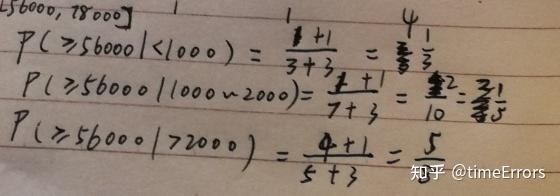 [56000, 78000]
1 4
P(≥56000|<1000) = 1+1/3+3 = 1/3
P(≥56000|1000~2000) = 1+1/7+3 = 2/10 = 1/5
P(≥56000|>2000) = 4+1/5+3 = 5/
知乎 @timeErrors